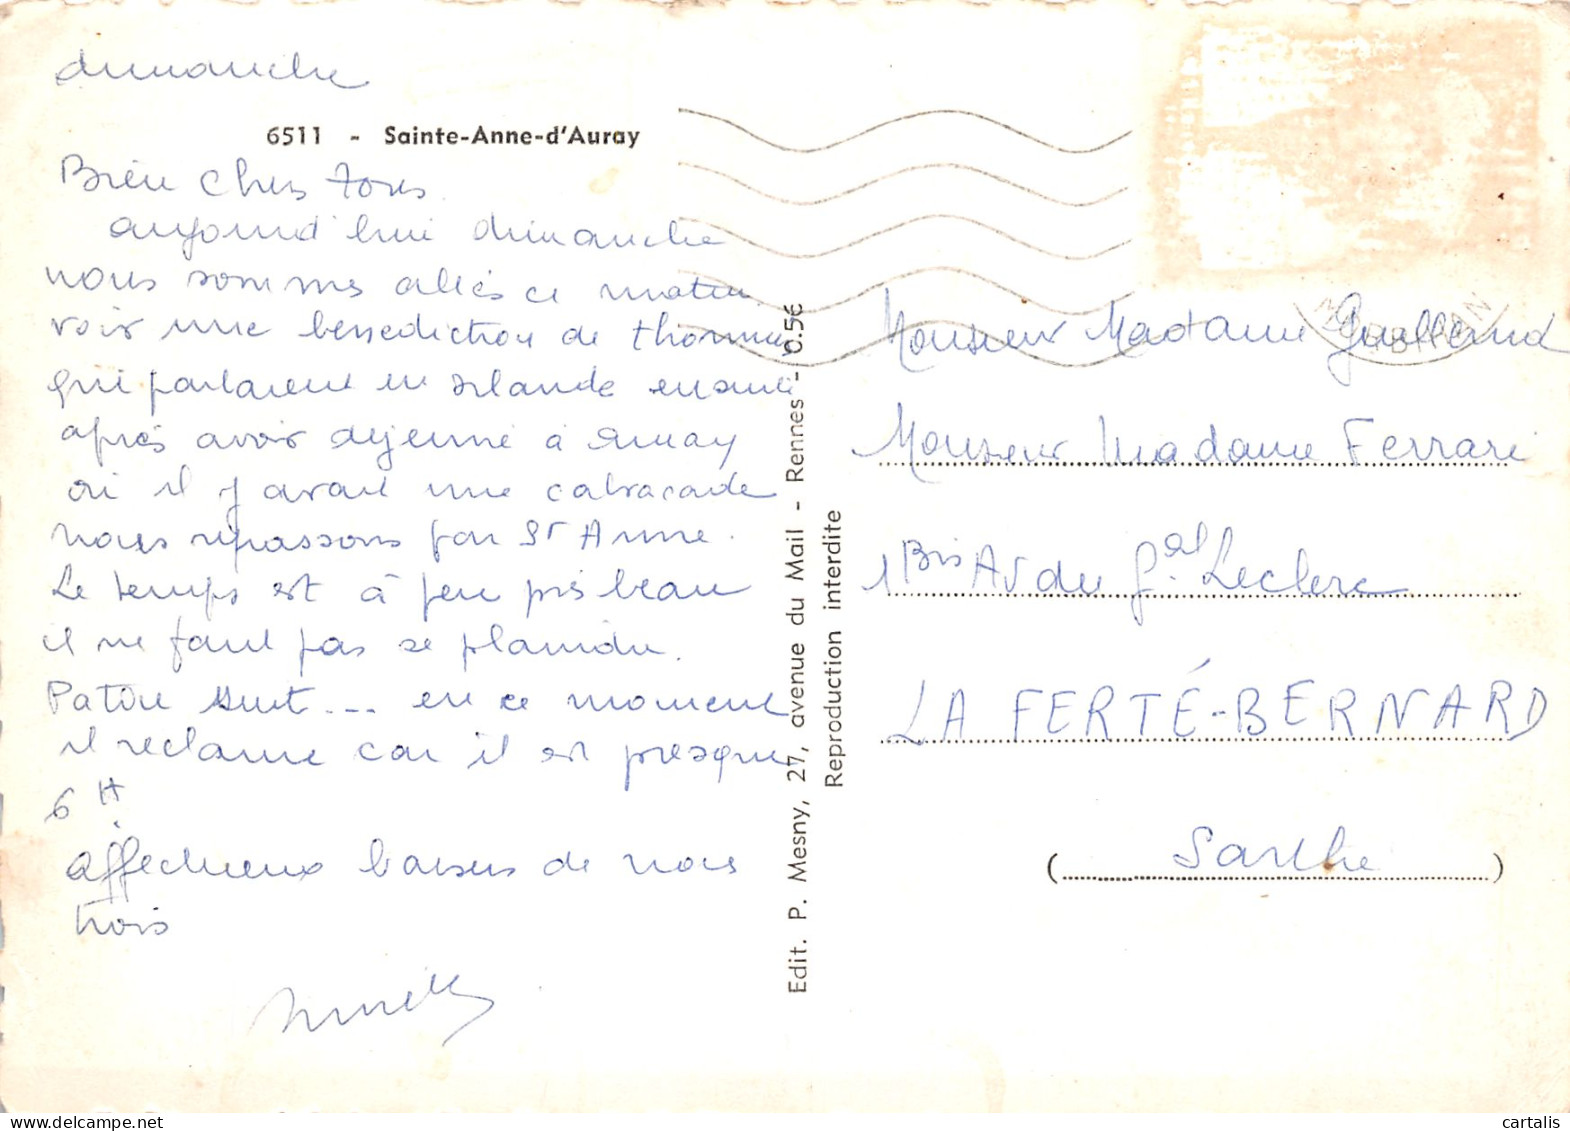 dimanche
6511 - Sainte-Anne-d'Auray
Bien chers tous
aujourd'hui dimanche
nous sommes allés ce matin
voir une benediction de thonniers
qui partaient en Irlande ensuite
après avoir dejeuné à Auray
où il y avait une
nous repassons par St Anne.
Le temps est à peu près beau
il ne faut pas se plaindre.
suit... en ce moment
il reclame car il est presque
6 H
affectueux baisers de nous
trois
Edit. P. Mesny, 27, avenue du Mail - Rennes - 0.5€
Reproduction interdite
MORBIHAN
Monsieur Madame
Monsieur Madame Ferrari
1 Bis Av du Gal. Leclerc
LA FERTÉ-BERNARD
(Sarthe)
cartalis
delcampe.net